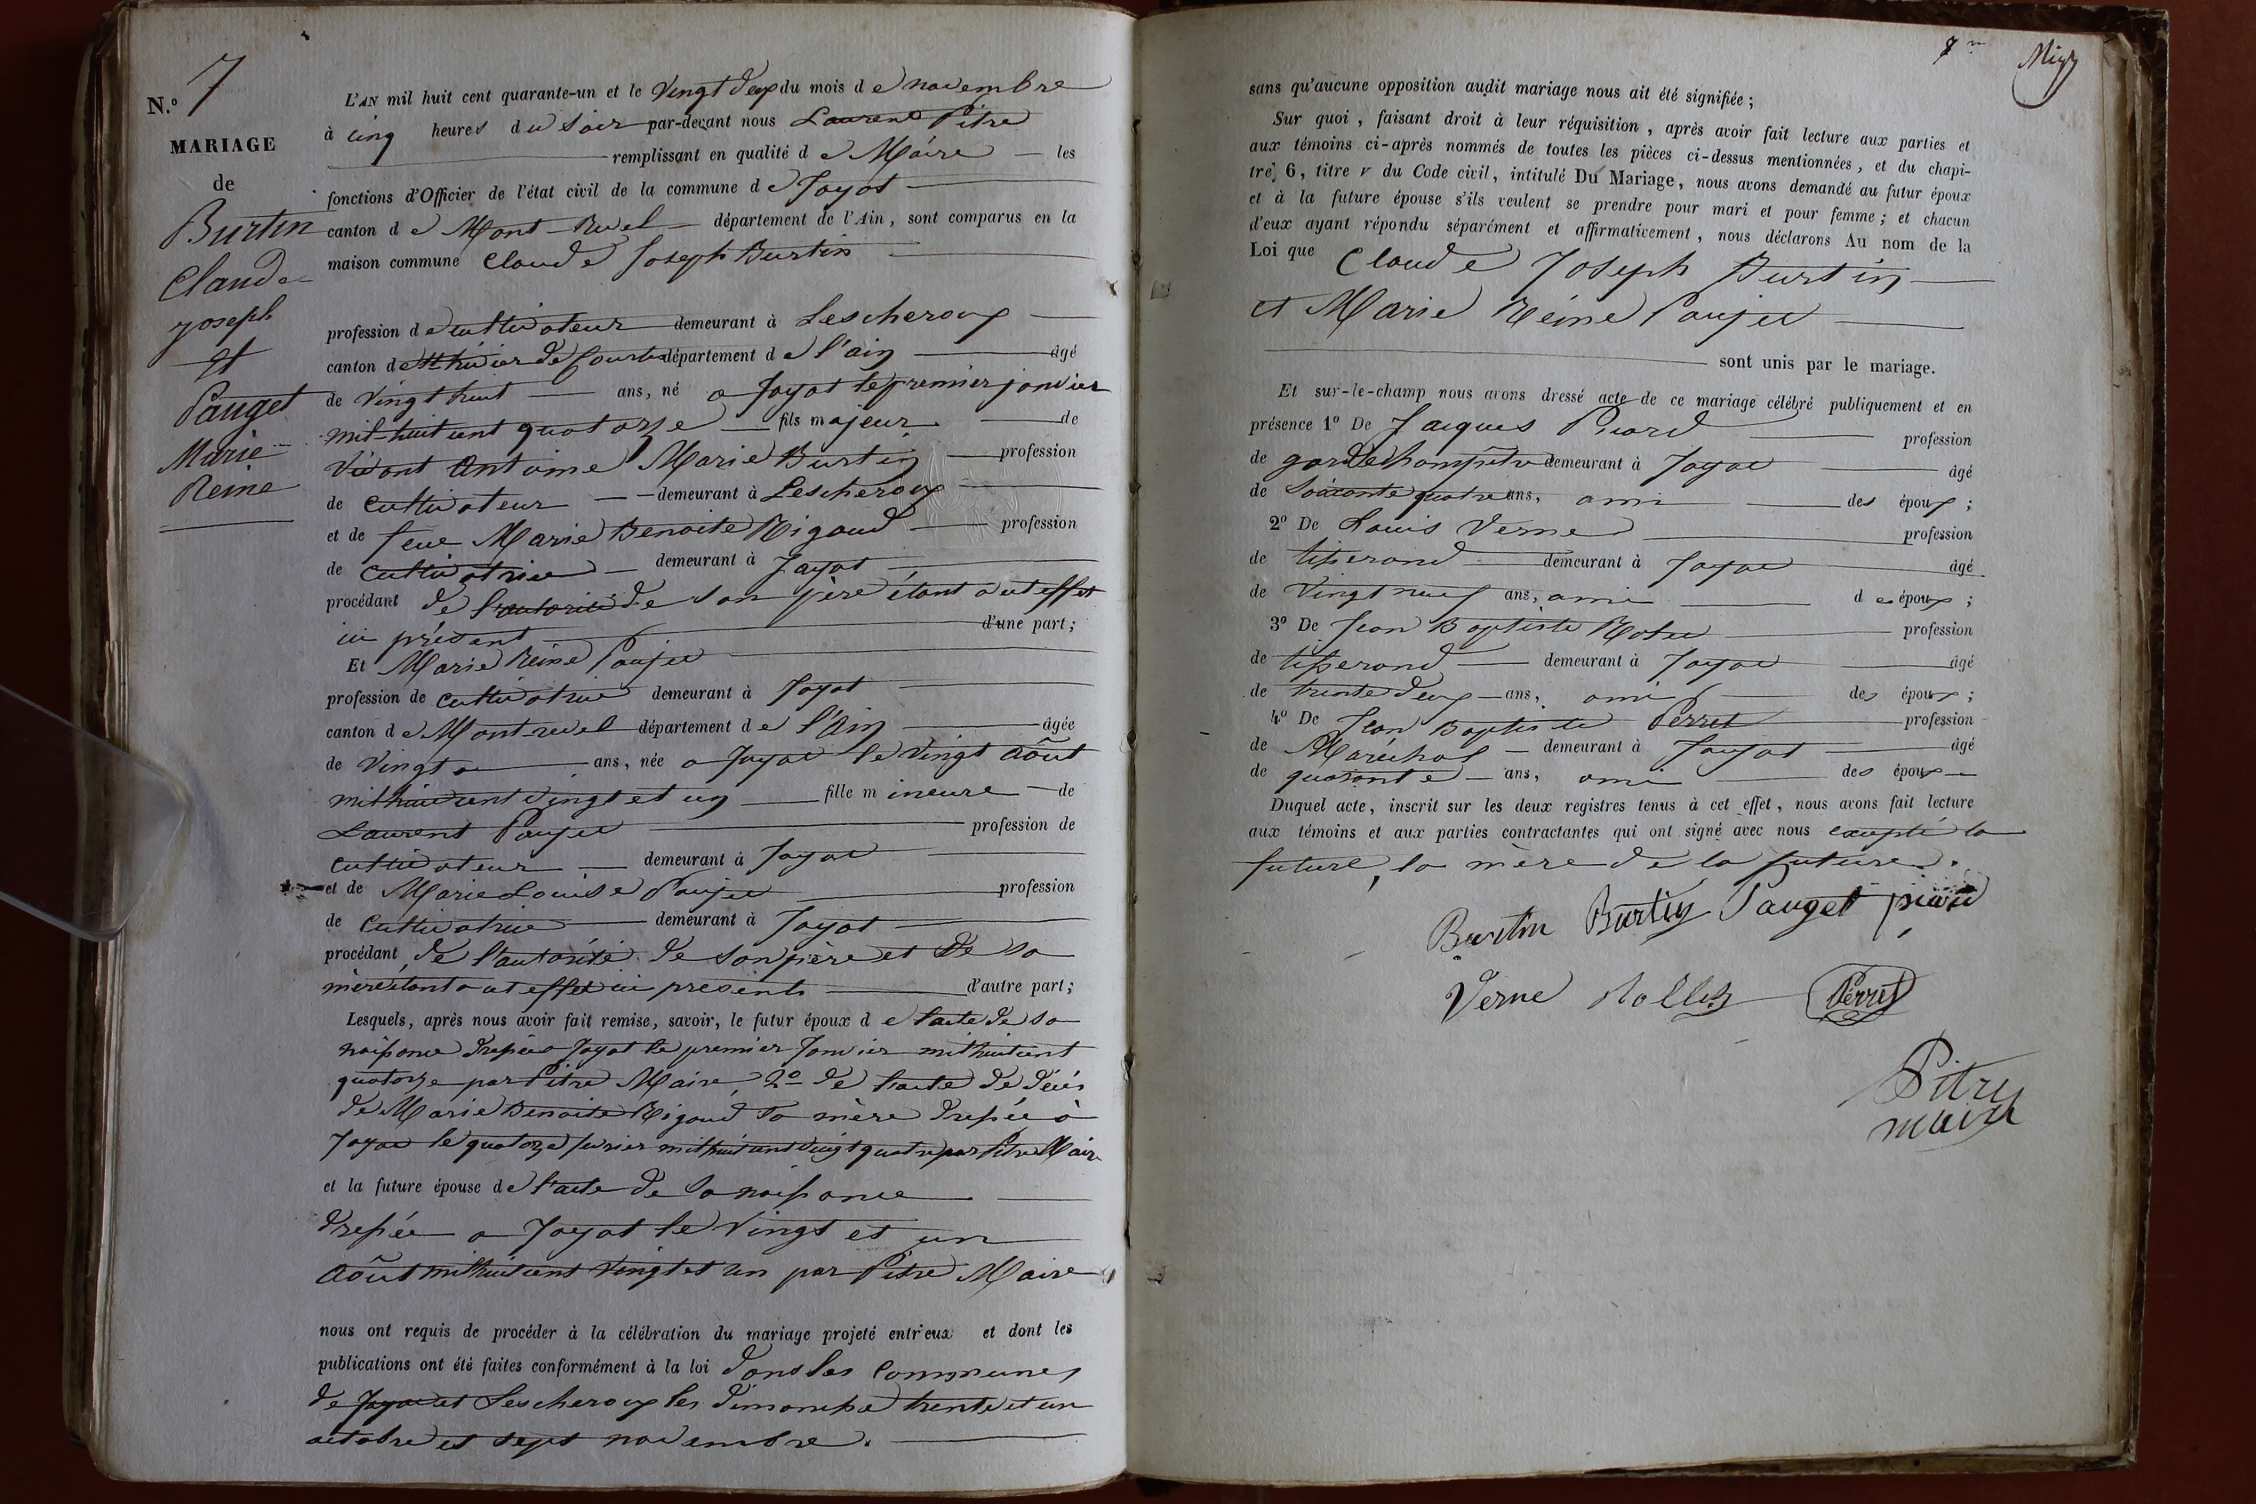 N.º 7
MARIAGE
de
Burtin
Claude
joseph
et
Pauget
Marie
Reine
L'AN mil huit cent quarante-un et le Vingt deux du mois de novembre
à cinq heures du soir par-devant nous Laurent Pitre
remplissant en qualité de Maire les
fonctions d'Officier de l'état civil de la commune de Jayat
canton de Mont-Revel département de l'Ain, sont comparus en la
maison commune Claude Joseph Burtin
profession de cultivateur demeurant à Lescheroux
canton de St trivier de Courtes département de l'ain âgé
de vingt huit ans, né a Jayat le premier janvier
mil-huit cent quatorze fils majeur de
vivant Antoine Marie Burtin profession
de cultivateur demeurant à Lescheroux
et de feue Marie Benoite Rigaud profession
de cultivatrice demeurant à Jayat
procédant de l'autorité de son père étant a cet effet
ici présent d'une part;
Et Marie Reine Paujet
profession de cultivatrice demeurant à Jayat
canton de Montrevel département de l'Ain âgée
de vingt ans, née a Jayat le vingt Août
mil huit cent vingt et un fille mineure de
Laurent Paujet profession de
cultivateur demeurant à Jayat
et de Marie Louise Paujet profession
de Cultivatrice demeurant à Jayat
procédant de l'autorité de son père et de sa
mère étant a cet effet ici présents d'autre part;
Lesquels, après nous avoir fait remise, savoir, le futur époux de l'acte de sa
naissance dressé a Jayat le premier Janvier mil huit cent
quatorze par Pitre Maire 2º de l'acte de décès
de Marie Benoite Rigaud sa mère dressé à
Jayat le quatorze fevrier mil huit cent vingt quatre par Pitre Maire
et la future épouse de l'acte de sa naissance
dressée a Jayat le vingt et un
Août mil huit cent vingt et un par Pitre Maire
nous ont requis de procéder à la célébration du mariage projeté entr'eux et dont les
publications ont été faites conformément à la loi dans les communes
de Jayat et Lescheroux les dimanche trente et un
octobre et sept novembre.
7
sans qu'aucune opposition audit mariage nous ait été signifiée;
Sur quoi, faisant droit à leur réquisition, après avoir fait lecture aux parties et
aux témoins ci-après nommés de toutes les pièces ci-dessus mentionnées, et du chapi-
tre 6, titre v du Code civil, intitulé Du Mariage, nous avons demandé au futur époux
et à la future épouse s'ils veulent se prendre pour mari et pour femme; et chacun
d'eux ayant répondu séparément et affirmativement, nous déclarons Au nom de la
Loi que Claude Joseph Burtin
et Marie Réine Paujet
sont unis par le mariage.
Et sur-le-champ nous avons dressé acte de ce mariage célébré publiquement et en
présence 1º De Jacques Picard profession
de garde champêtre demeurant à Jayat âgé
de soixante quatre ans, ami des époux;
2º De Louis Verne profession
de tisserand demeurant à Jayat âgé
de vingt neuf ans, ami des époux;
3º De Jean Baptiste profession
de tisserand demeurant à Jayat âgé
de trente deux ans, ami des époux;
4º De Jean Baptiste Perret profession
de Maréchal demeurant à Jayat âgé
de quarante ans, ami des époux
Duquel acte, inscrit sur les deux registres tenus à cet effet, nous avons fait lecture
aux témoins et aux parties contractantes qui ont signé avec nous excepté la
future, la mère de la future.
Burtin Burtin Pauget picard
Verne Perret
Pitre
maire